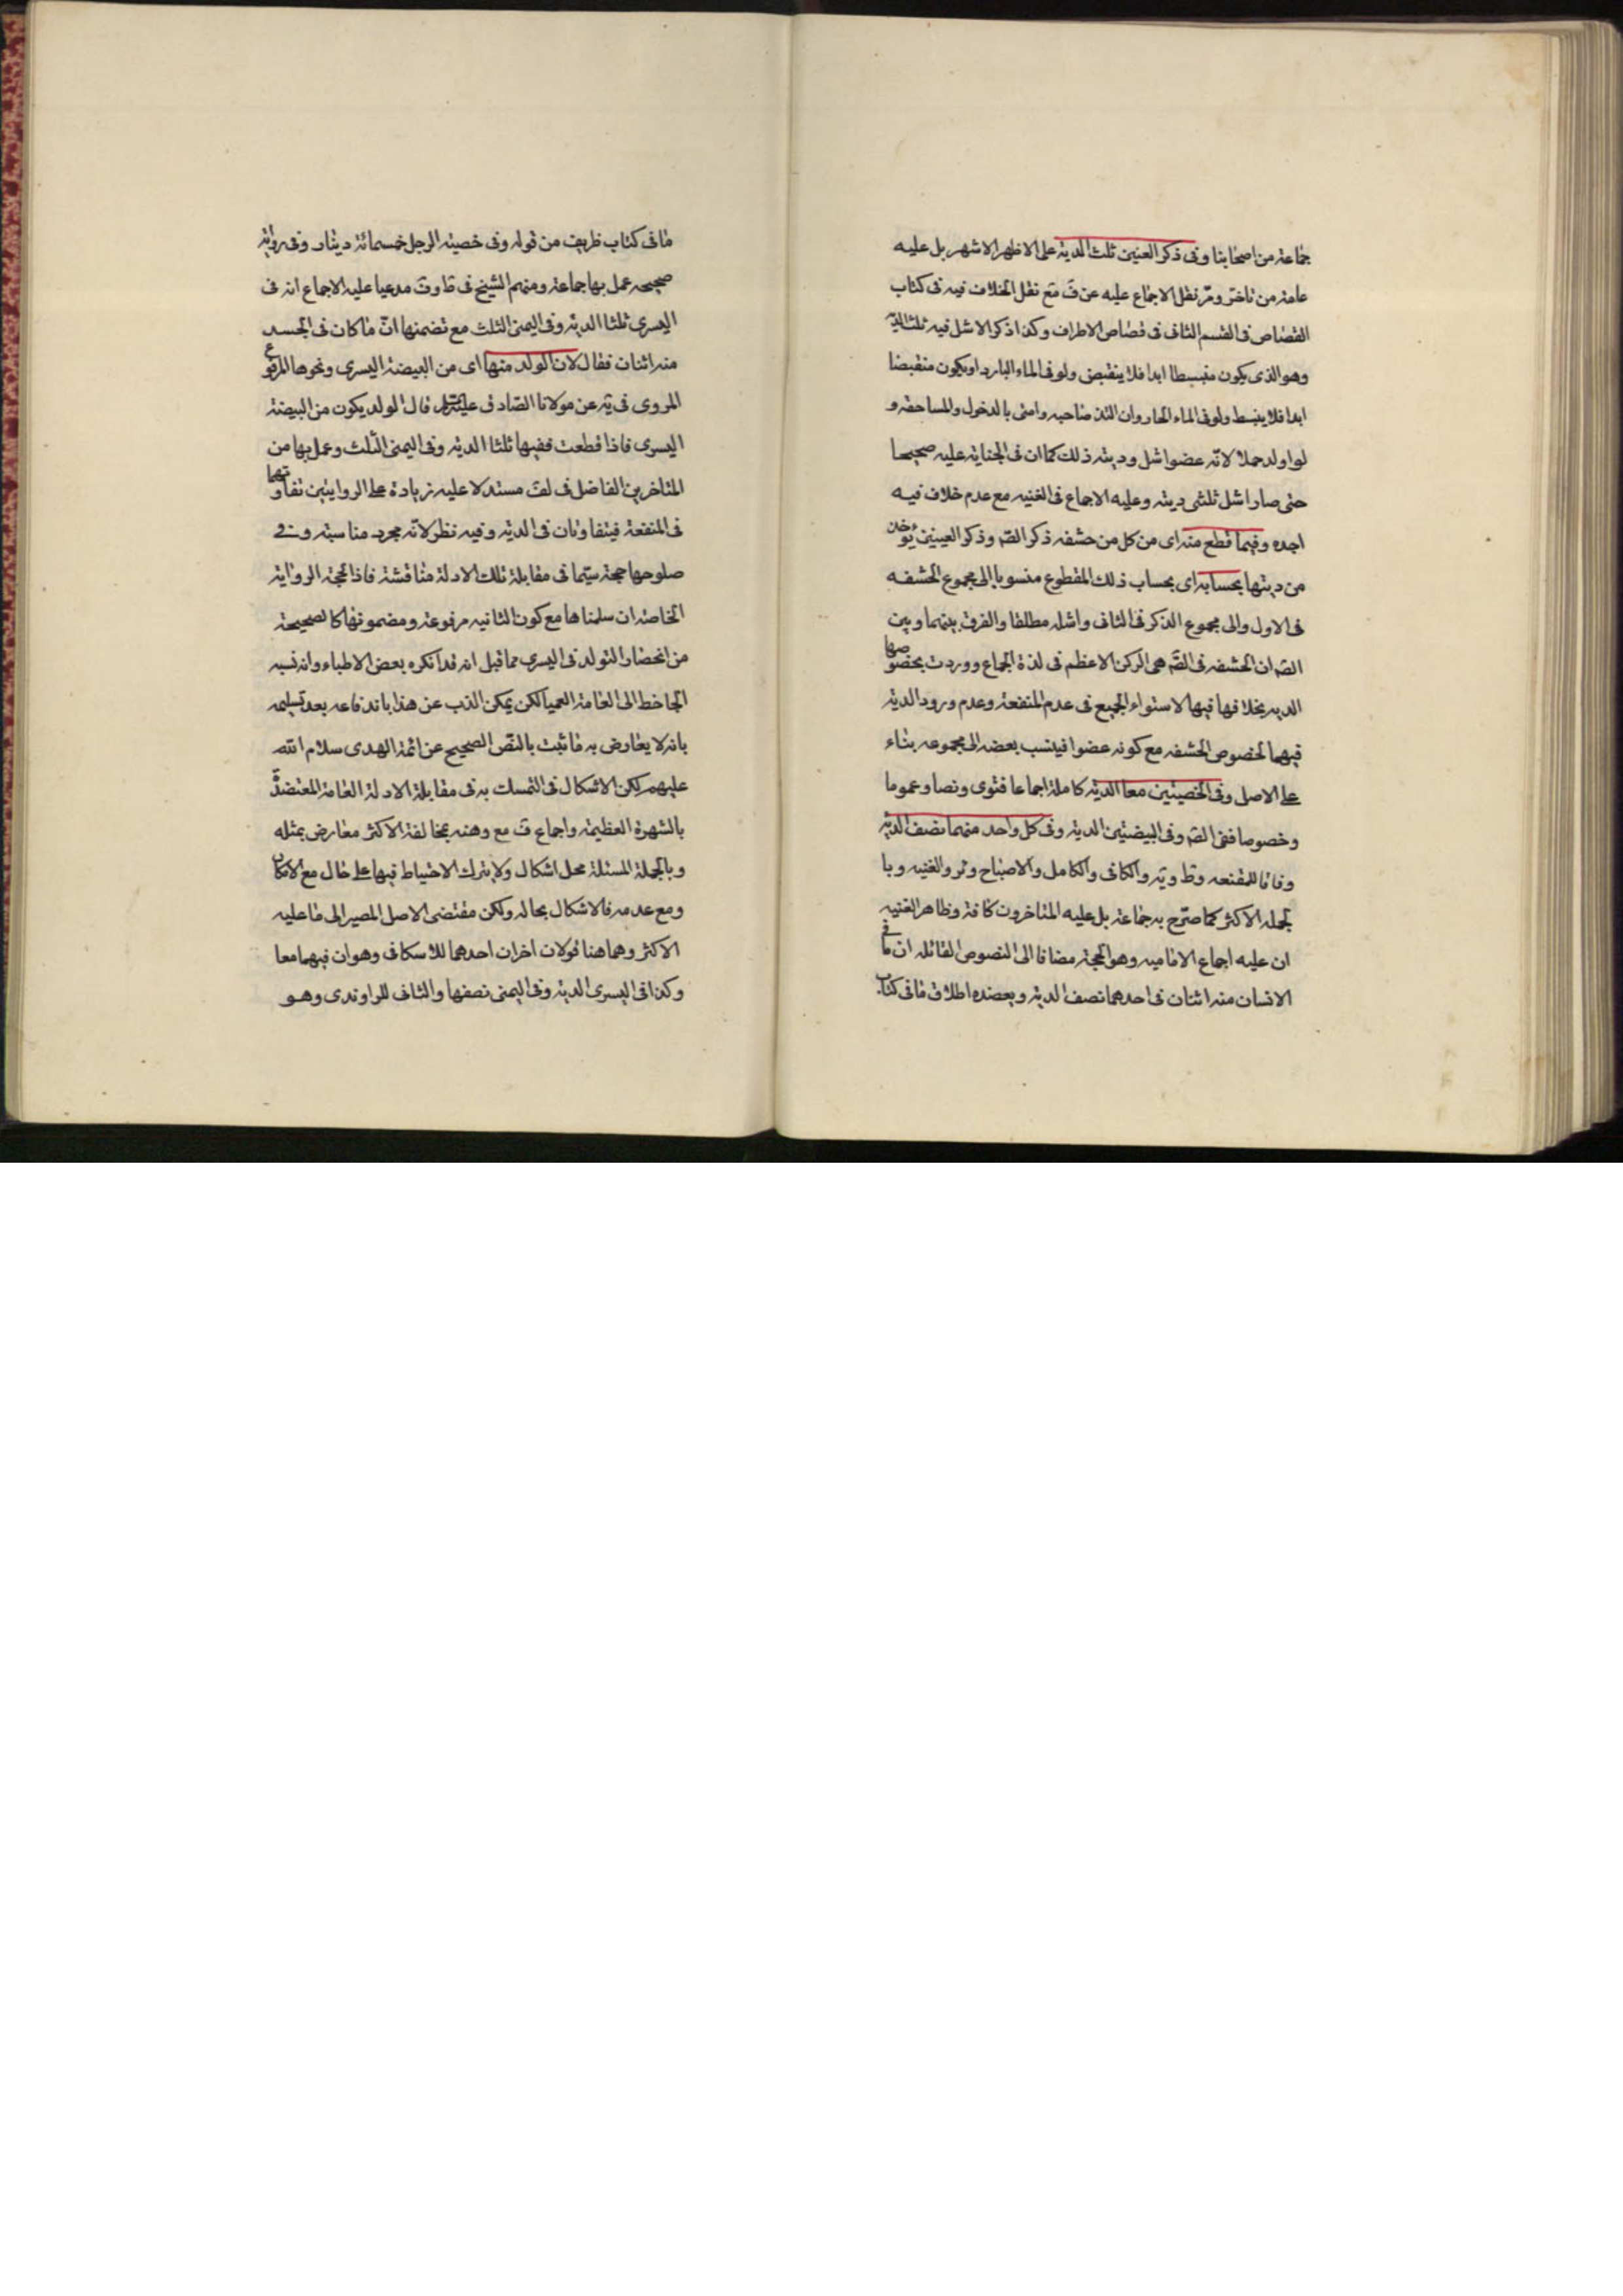 جماعة من اصحابنا وفى ذكر العنين ثلث الدية على الاظهر الاشهر بل عليه
عامة من تاخر ومر نقل الاجماع عليه عن ف مع نقل الخلاف فيه فى كتاب
القصاص فى القسم الثانى فى قصاص الاطراف وكذا ذكر الاشل فيه ثلث الدية
وهو الذى يكون منبسطا ابدا فلا ينقبض ولو فى الماء البارد او يكون منقبضا
ابدا فلا ينبسط ولو فى الماء الحار وان التذ صاحبه وامنى بالدخول والمساحقة و
لو اولد حملا لانه عضو اشل وديته ذلك كما ان فى الجناية عليه صحيحا
حتى صار اشل ثلثى ديته وعليه الاجماع فى الغنيه مع عدم خلاف فيه
اجده وفيما قطع منه اى من كل من حشفه ذكر الصّ وذكر العينين يؤخذ
من ديتها بحسابه اى بحساب ذلك المقطوع منسوبا الى مجموع الحشفه
فى الاول والى مجموع الذكر فى الثانى واشله مطلقا والفرق بينهما وبين
الصّ ان الحشفه فى الصّ هى الركن الاعظم فى لذة الجماع ووردت بخصوصها
الديه بخلافها فيها لاستواء الجميع فى عدم المنفعة وعدم ورود الدية
فيهما لخصوص الحشفه مع كونه عضوا فينسب بعضه الى مجموعه بناء
على الاصل وفى الخصيتين معا الدية كاملة اجماعا فتوى ونصا وعموما
وخصوصا ففى الصّ وفى البيضتين الدية وفى كل واحد منهما نصف الدية
وفاقا للمقنعه وط ويه والكافى والكامل والاصباح وئر والغنيه وبا
لجمله الاكثر كما صرّح به جماعة بل عليه المتاخرون كافة وظاهر الغنيه
ان عليه اجماع الاماميه وهو الحجة مضافا الى النصوص القائله ان ما فى
الانسان منه اثنان فى احدهما نصف الدية ويعضده اطلاق ما فى كتاب
ما فى كتاب ظريف من قوله وفى خصية الرجل خمسمائة دينار وفى رواية
صحيحه عمل بها جماعة ومنهم الشيخ فى ف مدعيا عليه الاجماع انه فى
اليسرى ثلثا الدية وفى اليمنى الثلث مع تضمنها انّ ما كان فى الجسد
منه اثنان فقال لان الولد منها اى من البيضة اليسرى ونحوها المرفوع
المروى فى يه عن مولانا الصادق عليه السلام قال الولد يكون من البيضة
اليسرى فاذا قطعت ففيها ثلثا الدية وفى اليمنى الثلث وعمل بها من
المتاخرين الفاضل فى لف مستدلا عليه زيادة على الروايتين تفاوتهما
فى المنفعة فيتفاوتان فى الدية وفيه نظر لانّه مجرد مناسبته وفى
صلوحها حجة سيّما فى مقابلة تلك الادلة مناقشة فاذا الحجة الرواية
الخاصة ان سلمناها مع كون الثانيه مرفوعة ومضمونها كالصحيحة
من انحصار التولد فى اليسرى مما قيل انه قد انكره بعض الاطباء وانه نسبه
الجاحظ الى العامة العميا لكن يمكن الذب عن هذا باندفاعه بعد تسليمه
بانه لا يعارض به ما ثبت بالنصّ الصحيح عن ائمة الهدى سلام الله
عليهم لكن الاشكال فى التمسك به فى مقابلة الادلة العامة المعتضدة
بالشهرة العظيمة واجماع ف مع وهنه بمخالفة الاكثر معارض بمثله
وبالجملة المسئلة محل اشكال ولا يترك الاحتياط فيها على حال مع الامكان
ومع عدمه فالاشكال بحاله ولكن مقتضى الاصل المصير الى ما عليه
الاكثر وهما هنا قولان اخران احدهما للاسكافى وهو ان فيهما معا
وكذا فى اليسرى الدية وفى اليمنى نصفها والثانى للراوندى وهو